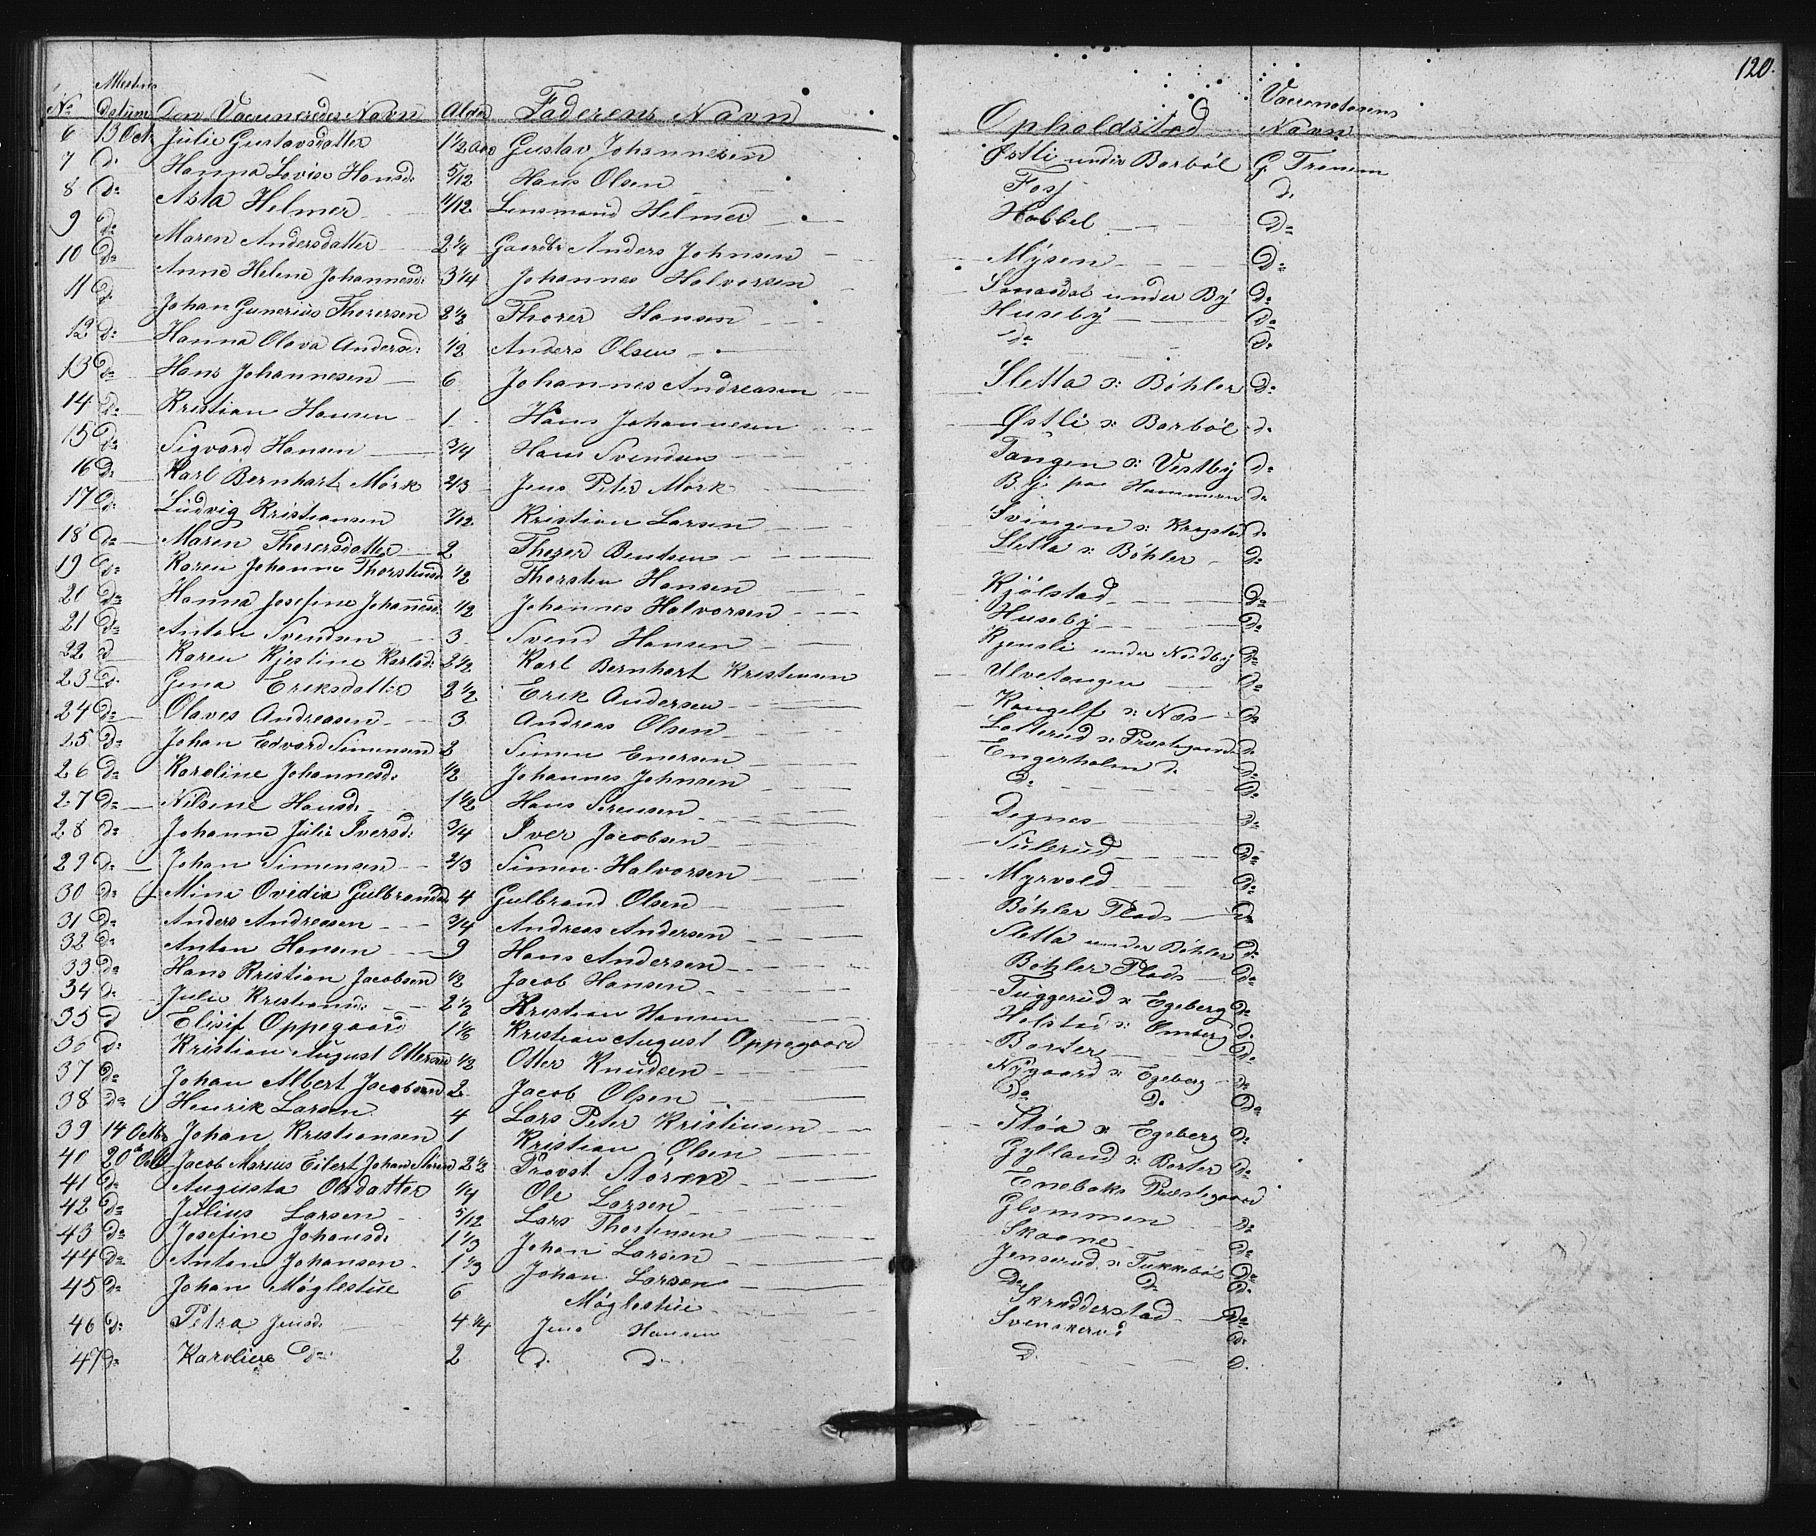 120.
No Attestens Datum Den Vaccineredes Navn Alder Faderens Navn Opholdsted Vaccinateurens Navn
6 13 Oct. Julie Gustavsdatter 1 1/2 Aar Gustav Johannesen Østli under Barbøl G. Trønem
7 do Hanna Lovise Hansd: 5/12 Hans Olsen Fosj do
8 do Asta Helmer 4/12 Lensmand Helmer Hobbel do
9 do Maren Andersdatter 2 1/4 Gaardbr Anders Johnsen Mysen do
10 do Anne Helene Johannesd: 3 1/4 Johannes Halvorsen under By do
11 do Johan Gunerius Thorersen 2 1/2 Thorer Hansen Huseby do
12 do Hanna Olava Andersd: 1/2 Anders Olsen do do
13 do Hans Johannesen 6 Johannes Andreasen Sletta u: Bøhler do
14 do Kristian Hansen 1 Hans Johannesen Østli u: Barbøl do
15 do Sigvard Hansen 3/4 Hans Svendsen Tangen u: Vestby do
16 do Karl Bernhart Mørk 2/3 Jens Peter Mørk By paa Hammeren do
17 do Ludvig Kristiansen 7/12 Kristian Larsen Svingen u: Krogstad do
18 do Maren Thorersdatter 2 Thorer Bentsen Sletta u: Bøhler do
19 do Karen Johanne Thorstensd: 1/2 Thorsten Hansen Kjølstad do
20 do Hanna Josefine Johannesd: 1/2 Johannes Halvorsen Huseby do
21 do Anton Svendsen 3 Svend Hansen under Nordby do
22 do Karen Kjestine Karlsd: 2 1/2 Karl Bernhart Kristiansen Ulvetangen do
23 do Gina Eriksdatter 2 1/2 Erik Andersen u: Næs do
24 do Olaves Andreasen 3 Andreas Olsen u: Præstegaarden do
25 do Johan Edvard Simensen 2 Simen Enersen Engerholm do do
26 do Karoline Johannesd: 1/2 Johannes Johnsen do do
27 do Nilsine Hansd: 1 1/2 Hans Sørensen Degnes do
28 do Johanne Julie Iversd: 3/4 Iver Jacobsen Sulerud do
29 do Johan Simensen 2/3 Simen Halvorsen Myrvold do
30 do Mina Ovidia Gulbrandsd 4 Gulbrand Olsen Bøhler Plads do
31 do Anders Andreasen 3/4 Andreas Andersen Sletta under Bøhler do
32 do Anton Hansen 9 Hans Andersen Bøhler Plads do
33 do Hans Kristian Jacobsen 1/2 Jacob Hansen Tuggerud u: Egeberg do
34 do Julie Kristiansd: 2 1/2 Kristian Hansen Holstad u: do
35 do Elisif Oppegaard 1 1/6 Kristian August Oppegaard Borter do
36 do Kristian August Ottersen 1/2 Otter Knudsen Nygaard u: Egeberg do
37 do Johan Albert Jacobsen 2 Jacob Olsen do do do
38 do Henrik Larsen 4 Lars Peter Kristiansen Støa u: Egeberg do
39 14 Octbr Johan Kristiansen 1 Kristian Olsen Gylland u: Borter do
40 20de Oct Jacob Marius Eilert Johan Støren 2 1/2 Provst Støren Enebaks Præstegaard
41 do Augusta Olsdatter 1/4 Ole Larsen Glommen do
42 do Julius Larsen 5/12 Lars Thorstensen Skaane do
43 do Josefine Johansd: 1 1/3 Johan Larsen Jenserud u: Tukkebøl do
44 do Anton Johansen 1 1/3 Johan Larsen do do do
45 do Johan Møglestue 6 Møglestue Skrædderstad do
46 do Petra Jensd: 4 1/4 Jens Hansen Svenskerud do
47 do Karoline do 2 do do do do